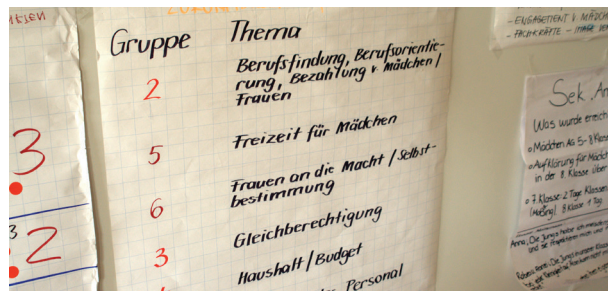 Gruppe Thema
2 Berufsfindung, Berufsorientie-
rung, Bezahlung v. Mädchen /
Frauen
5 Freizeit für Mädchen
6 Frauen an die Macht / Selbst-
bestimmung
3 Gleichberechtigung
Haushalt / Budget
Personal
3
3
2
- ENGAGEMENT V. MÄDCH
- FACHKRÄFTE -
Sek. An
Was wurde erreich
Mädchen AG 5-8 Klass
Aufklärung für Mädch
in der 8 Klasse über
7. Klasse: 2 Tage Klassen
8 Klasse 1 Tag